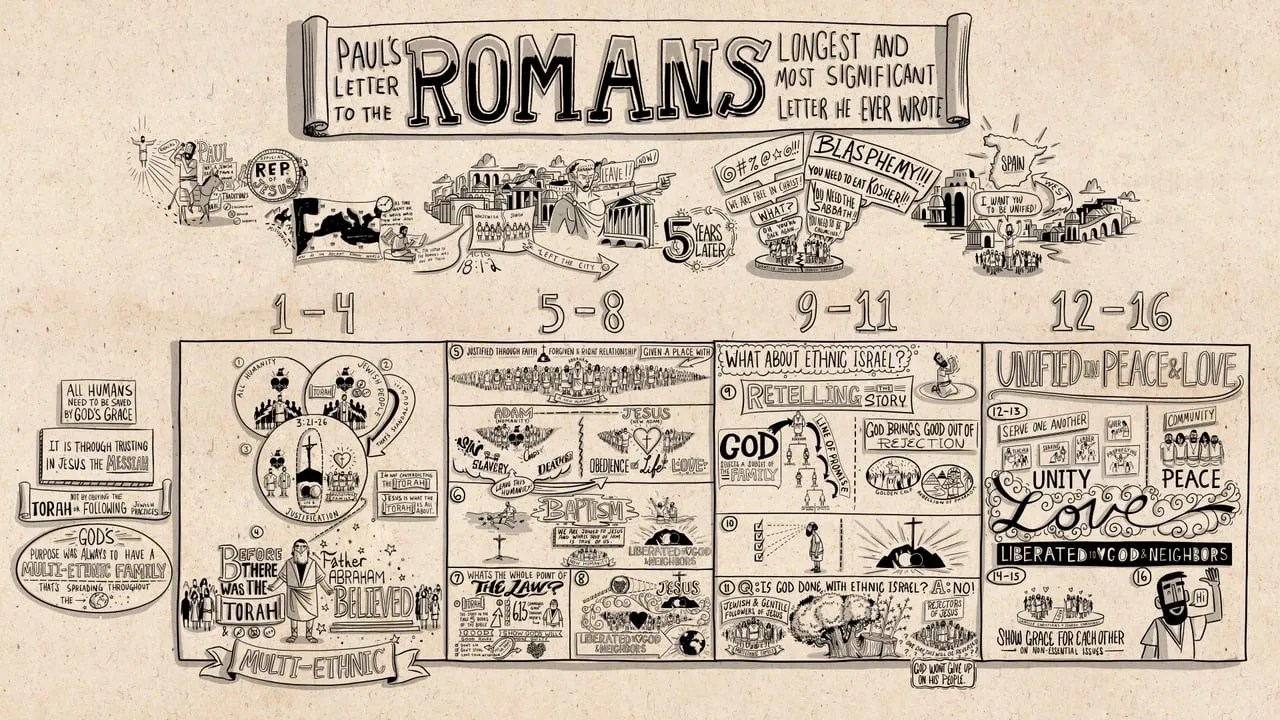 PAUL'S
LETTER
TO THE
ROMANS
LONGEST AND
MOST SIGNIFICANT
LETTER HE EVER WROTE
PAUL
TRADITIONS
OFFICIAL
REP
OF
JESUS
LEAVE!!
NOW!
NON-JEWISH JEWISH
ACTS
18:1-2
LEFT THE CITY
5 YEARS
LATER
@#%@☆@!!!
WE ARE FREE IN CHRIST
WHAT?
BLASPHEMY!!!
YOU NEED TO EAT KOSHER!!!
YOU NEED THE
SABBATH!
SPAIN
YES!
I WANT YOU
TO BE UNIFIED!
1-4
5-8
9-11
12-16
ALL HUMANS
NEED TO BE SAVED
BY GOD'S GRACE
IT IS THROUGH TRUSTING
IN JESUS THE MESSIAH
NOT BY OBEYING THE
TORAH OR FOLLOWING JEWISH PRACTICES
GOD'S
PURPOSE WAS ALWAYS TO HAVE A
MULTI-ETHNIC FAMILY
THAT'S SPREADING THROUGHOUT
THE
1
ALL HUMANITY
2
TORAH
JEWISH PEOPLE
3
3:21-26
FAMILY
JUSTIFICATION
I'M NOT CONTRADICTING
THE TORAH
JESUS IS WHAT THE
TORAH IS ALL
ABOUT.
4
BEFORE
THERE
WAS THE
TORAH
&
Father
ABRAHAM
BELIEVED
MULTI-ETHNIC
5 JUSTIFIED THROUGH FAITH FORGIVEN & RIGHT RELATIONSHIP GIVEN A PLACE WITH
ADAM
(HUMANITY)
JESUS
(NEW ADAM)
SIN
SLAVERY
DEATH
LEAVE THIS
HUMANITY!
OBEDIENCE life LOVE
6
BAPTISM
WE ARE JOINED TO JESUS
AND WHAT'S TRUE OF HIM
IS TRUE OF US.
LIBERATED TO GOD
& NEIGHBORS
7 WHAT'S THE WHOLE POINT OF
THE LAW?
TORAH
613
GOOD
SHOWS GOD'S WILL
8
JESUS
LIBERATED TO GOD
& NEIGHBORS
WHAT ABOUT ETHNIC ISRAEL?
9
RETELLING THE STORY
GOD
SELECTS A SUBSET OF
THE FAMILY
LINE OF PROMISE
GOD BRINGS GOOD OUT OF
REJECTION
GOLDEN CALF
10
11 Q: IS GOD DONE WITH ETHNIC ISRAEL? A: NO!
JEWISH & GENTILE
FOLLOWERS OF JESUS
REJECTORS
OF JESUS
GOD WON'T GIVE UP
ON HIS PEOPLE.
UNIFIED IN PEACE & LOVE
12-13
SERVE ONE ANOTHER
COMMUNITY
UNITY
PEACE
Love
LIBERATED TO GOD & NEIGHBORS
14-15
SHOW GRACE FOR EACH OTHER
ON NON-ESSENTIAL ISSUES
16
HI